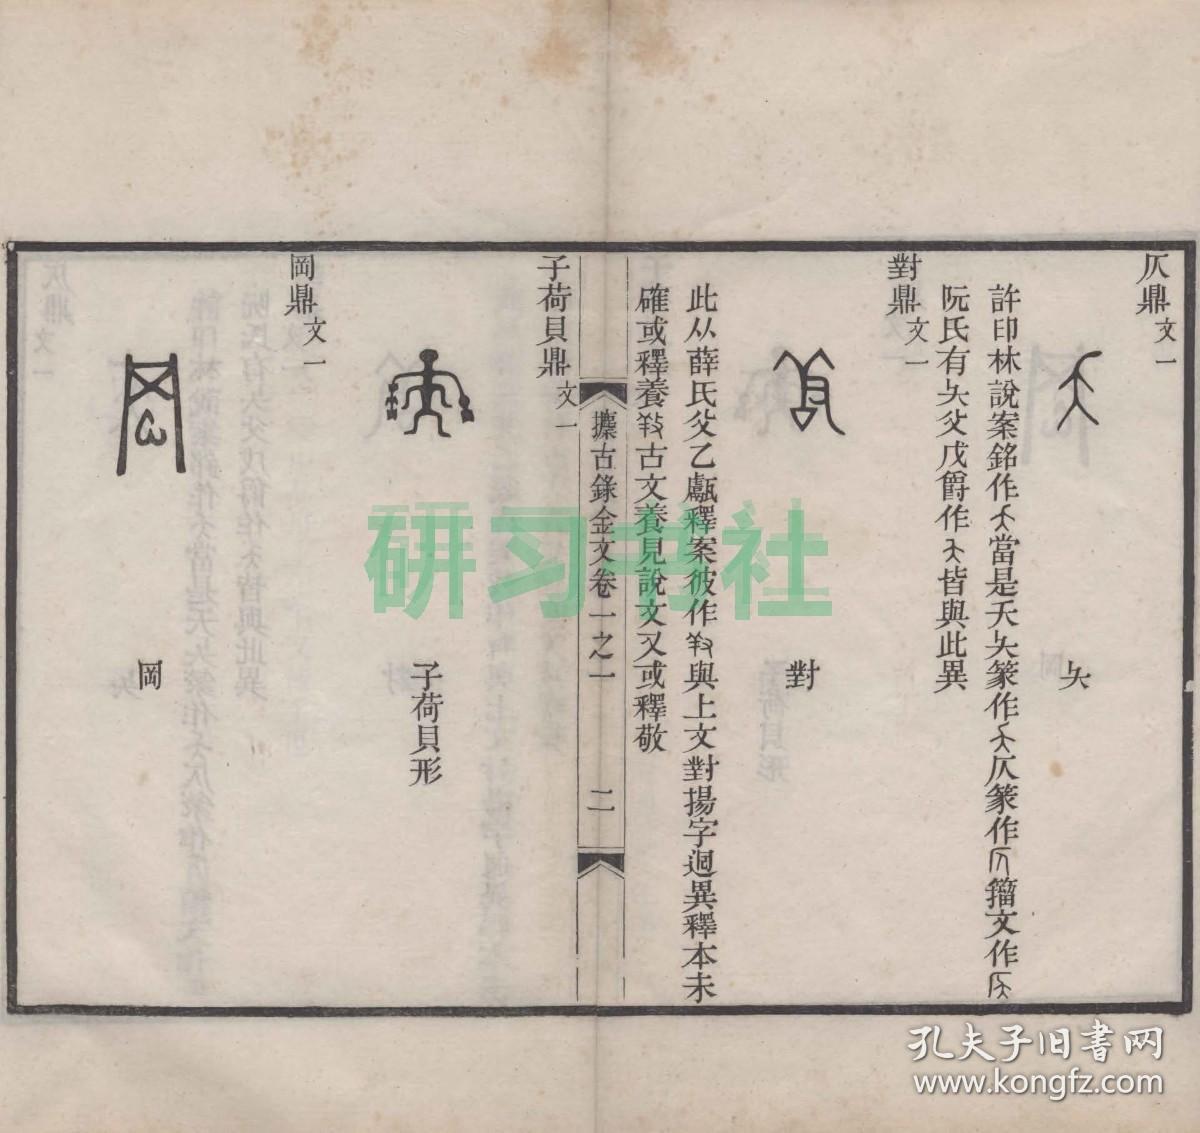 仄鼎 文一
夨
許印林說案銘作當是夭夨篆作仄篆作籀文作
阮氏有夨父戊爵作皆與此異
對鼎 文一
對
此从薛氏父乙甗釋案彼作與上文對揚字迥異釋本未
確或釋養古文養見說文又或釋敬
攈古錄金文卷一之一 二
子荷貝鼎 文一
子荷貝形
岡鼎 文一
岡
研习书社
孔夫子旧书网
www.kongfz.com